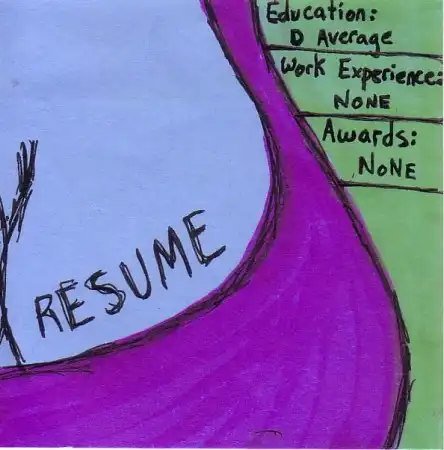 Education:
D Average
Work Experience:
NONE
Awards:
NoNE
RESUME